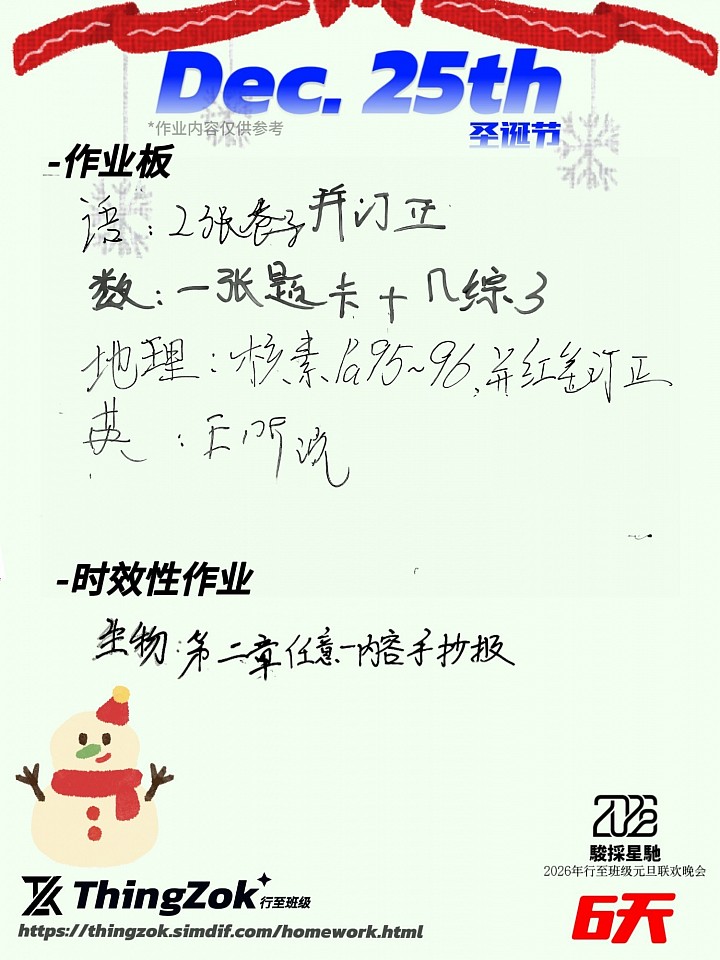 Dec. 25th
*作业内容仅供参考
圣诞节
-作业板
语：2张卷子并订正
数：一张题卡+几综3
地理：核素Pa95~96,并红笔订正
英：王听说
-时效性作业
生物：第二章任意一内容手抄报
2026
駿採星馳
2026年行至班级元旦联欢晚会
6天
ThingZok 行至班级
https://thingzok.simdif.com/homework.html